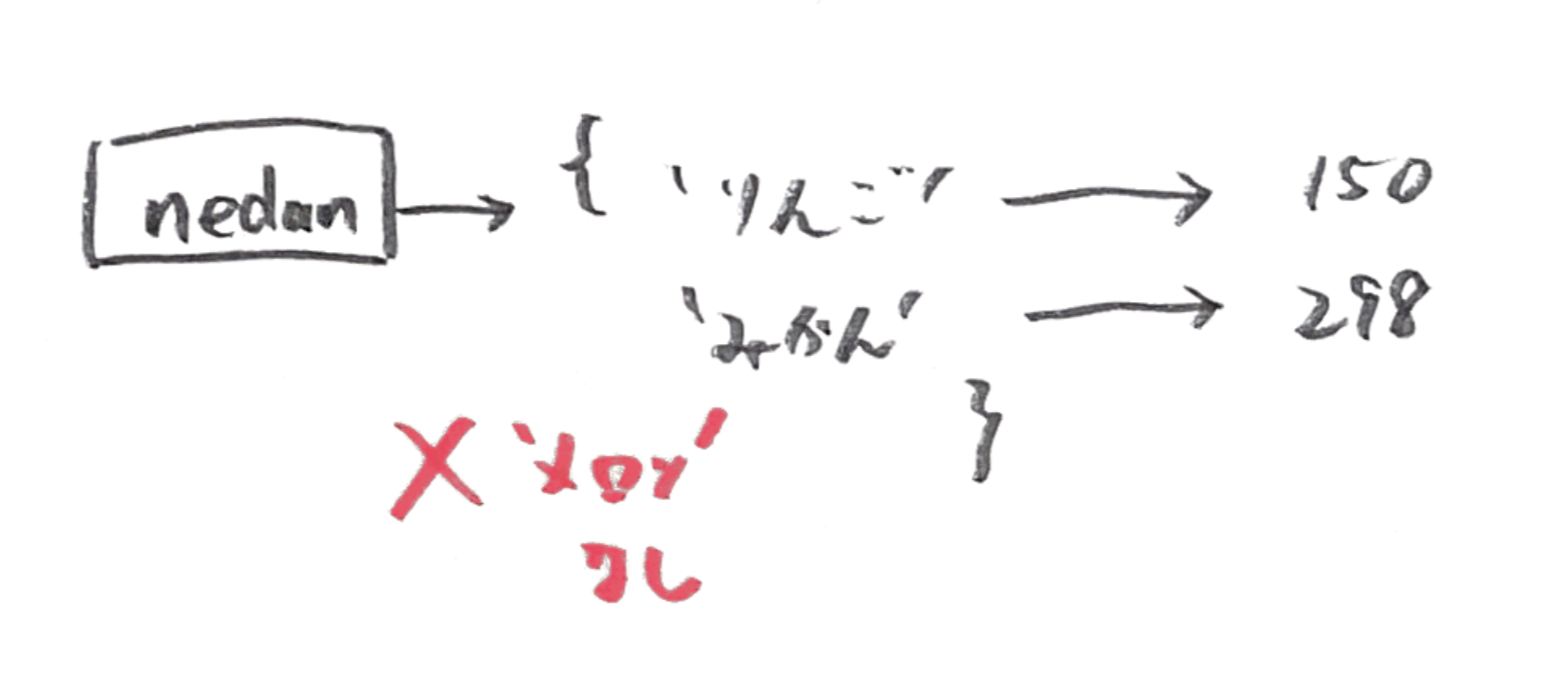 nedan → { 'りんご' → 150
'みかん' → 298
}
× 'メロン'
なし